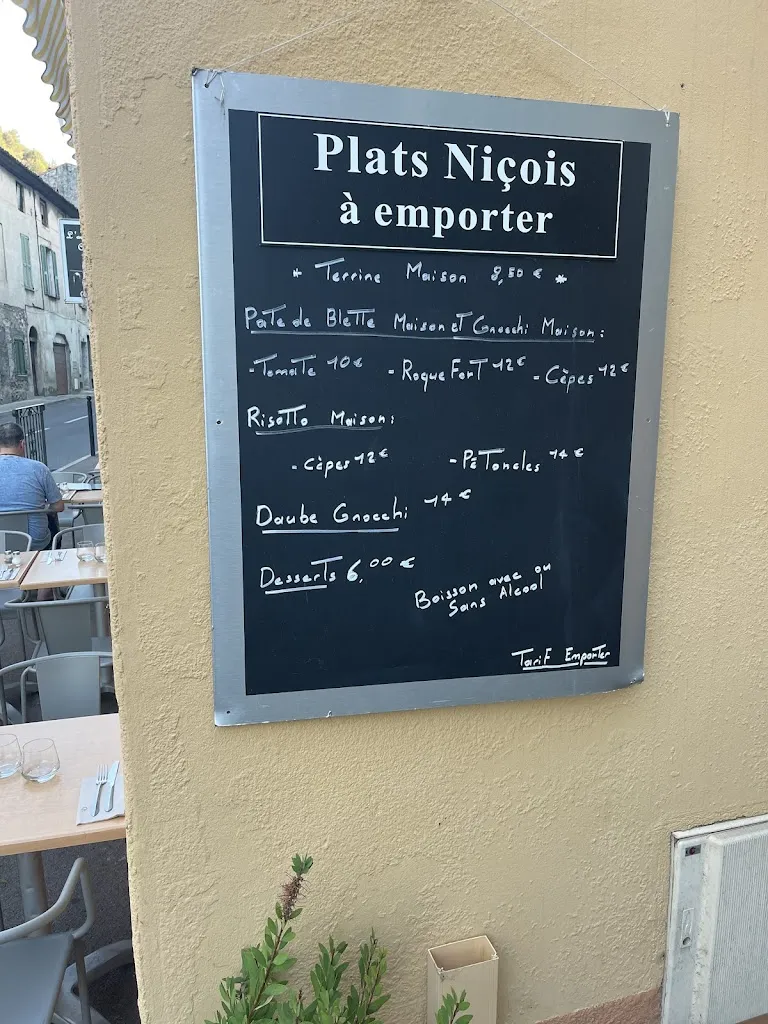 Plats Niçois
à emporter
* Terrine Maison 8,50 € *
Pate de Blette Maison et Gnocchi Maison :
- Tomate 10 € - RoqueForT 12 € - Cèpes 12 €
Risotto Maison :
- Cèpes 12 € - PéToncles 14 €
Daube Gnocchi 14 €
Desserts 6,00 €
Boisson avec ou
Sans Alcool
Tarif Emporter